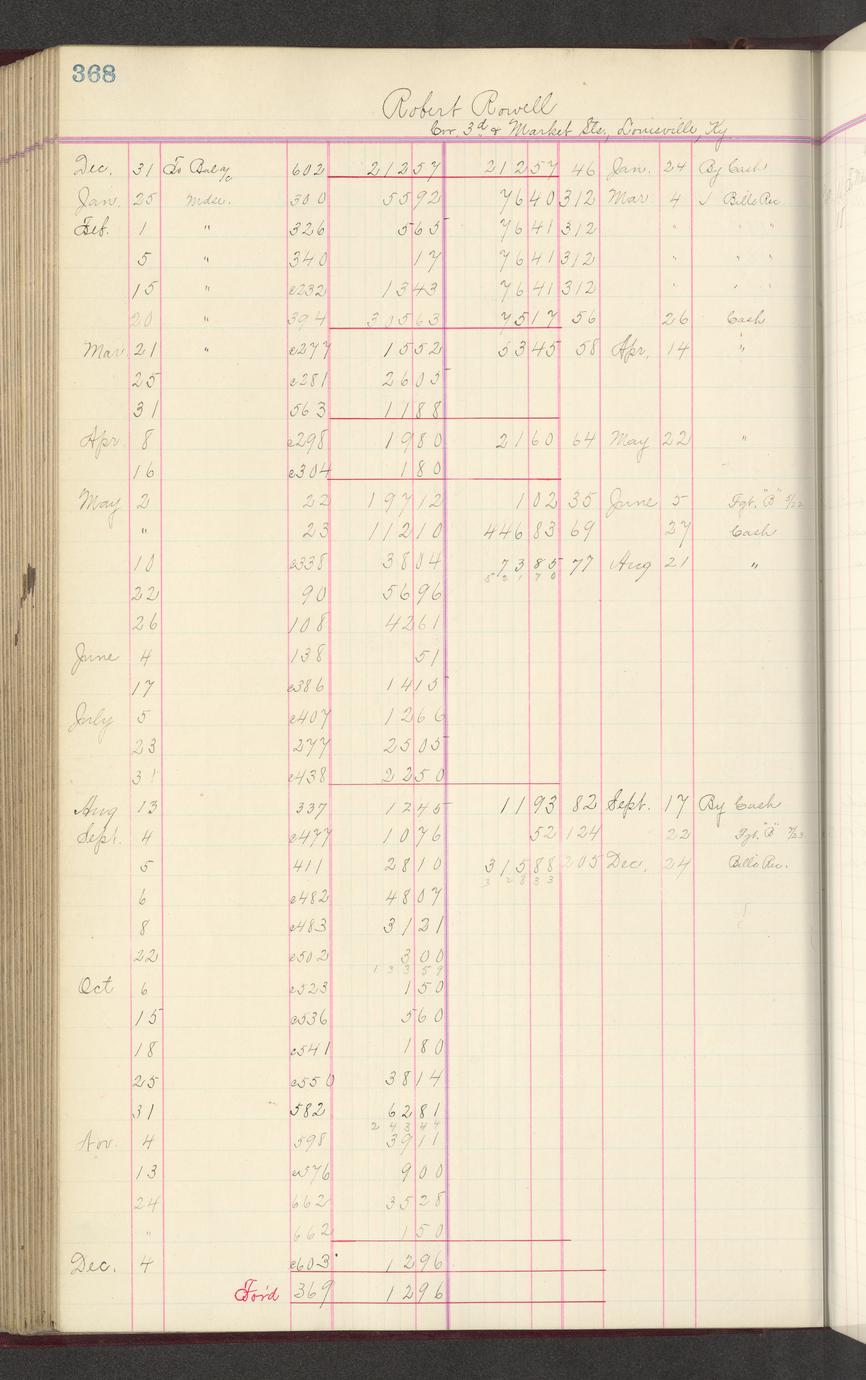 368
Robert Rowell
Cor. 3d & Market Sts., Louisville, Ky.
Dec. 31 To Bal a/c 602 212 57 212 57 46 Jan. 24 By Cash
Jan. 25 Mdse. 300 55 92 76 40 312 Mar 4 √ Bills Rec.
Feb. 1 " 326 5 65 76 41 312 " " "
5 " 340 17 76 41 312 " " "
15 " c232 13 43 76 41 312 " " "
20 " 394 305 63 75 17 56 26 Cash
Mar. 21 " c277 15 52 53 45 58 Apr. 14 "
25 c281 26 05
31 563 11 88
Apr. 8 c298 19 80 21 60 64 May 22 "
16 c304 1 80
May 2 22 197 12 1 02 35 June 5 Fgt. "B" 5/22
" 23 112 10 446 83 69 27 Cash
10 c338 38 04 73 85 77 Aug 21 "
521 70
22 90 56 96
26 108 42 61
June 4 138 51
17 c386 14 15
July 5 c407 12 66
23 277 25 05
31 c438 22 50
Aug 13 337 12 45 11 93 82 Sept. 17 By Cash
Sept. 4 c477 10 76 52 124 22 Fgt. "B" 9/23
5 411 28 10 315 88 205 Dec. 24 Bills Rec.
328 33
6 c482 48 07
8 c483 31 21
22 c502 3 00
133 59
Oct 6 c523 1 50
15 c536 5 60
18 c541 1 80
25 c550 38 14
31 582 62 81
243 44
Nov. 4 598 39 11
13 c576 9 00
24 662 35 28
" 662 1 50
Dec. 4 c603 12 96
For'd 369 12 96